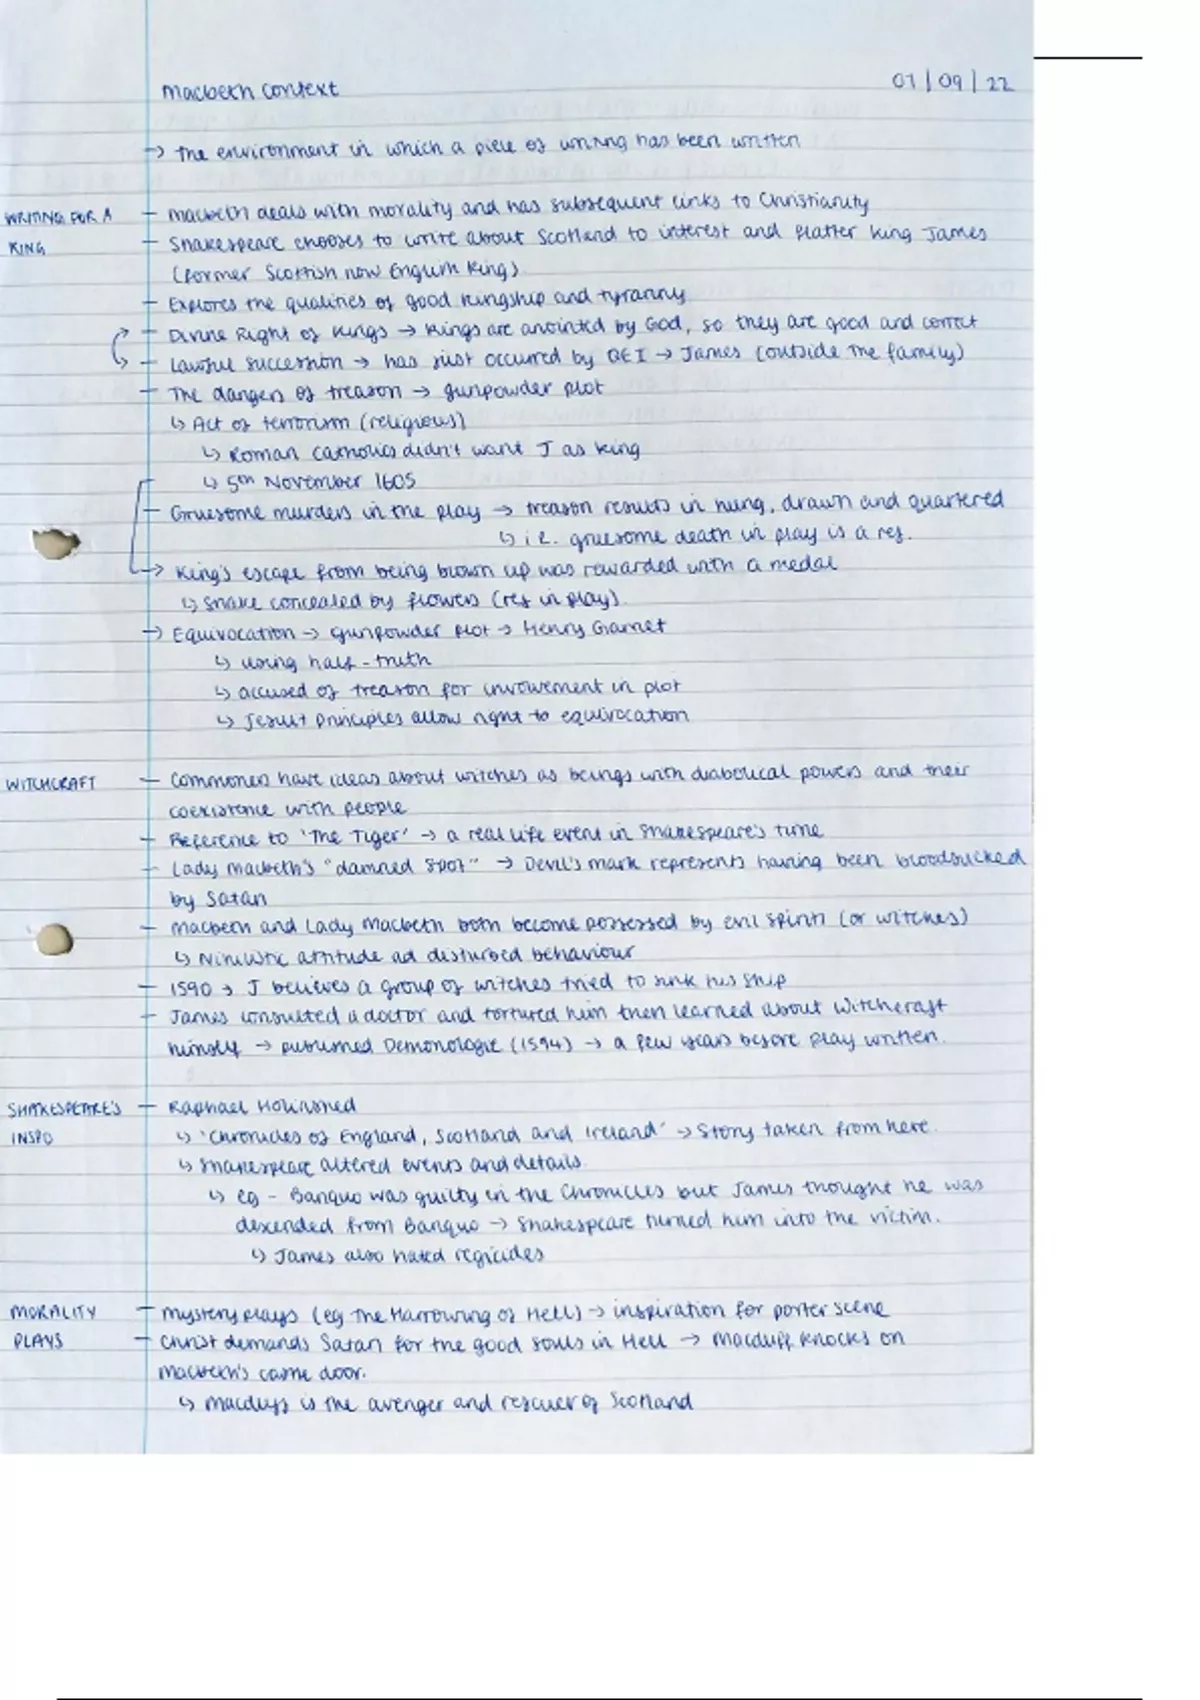 Macbeth Context 07/09/22
→ The environment in which a piece of writing has been written
WRITING FOR A - Macbeth deals with morality and has subsequent links to Christianity
KING - Shakespeare chooses to write about Scotland to interest and flatter King James
(former Scottish now English King)
- Explores the qualities of good kingship and tyranny
- Divine Right of Kings → Kings are anointed by God, so they are good and correct
- Lawful succession → has just occurred by QEI → James (outside the family)
- The dangers of treason → gunpowder plot
↳ Act of terrorism (religious)
↳ Roman Catholics didn't want J as King
↳ 5th November 1605
- Gruesome murders in the play → treason results in hung, drawn and quartered
↳ i.e. gruesome death in play is a ref.
→ King's escape from being blown up was rewarded with a medal
↳ Snake concealed by flowers (ref in play)
→ Equivocation → gunpowder plot → Henry Garnet
↳ using half-truth
↳ accused of treason for involvement in plot
↳ Jesuit principles allow right to equivocation
WITCHCRAFT - Commoners have ideas about witches as beings with diabolical powers and their
coexistence with people
- Reference to 'The Tiger' → a real life event in Shakespeare's time
- Lady Macbeth's "damned spot" → Devil's mark represents having been bloodsucked
by Satan
- Macbeth and Lady Macbeth both become possessed by evil spirits (or witches)
↳ Nihilistic attitude ad disturbed behaviour
- 1590 → J believes a group of witches tried to sink his ship
- James consulted a doctor and tortured him then learned about witchcraft
himself → published Demonologie (1594) → a few years before play written.
SHAKESPEARE'S - Raphael Holinshed
INSPO ↳ 'Chronicles of England, Scotland and Ireland' → Story taken from here.
↳ Shakespeare altered events and details.
↳ eg - Banquo was guilty in the Chronicles but James thought he was
descended from Banquo → Shakespeare turned him into the victim.
↳ James also hated regicides
MORALITY - Mystery plays (eg The Harrowing of Hell) → inspiration for porter scene
PLAYS - Christ demands Satan for the good souls in Hell → Macduff knocks on
Macbeth's castle door.
↳ Macduff is the avenger and rescuer of Scotland